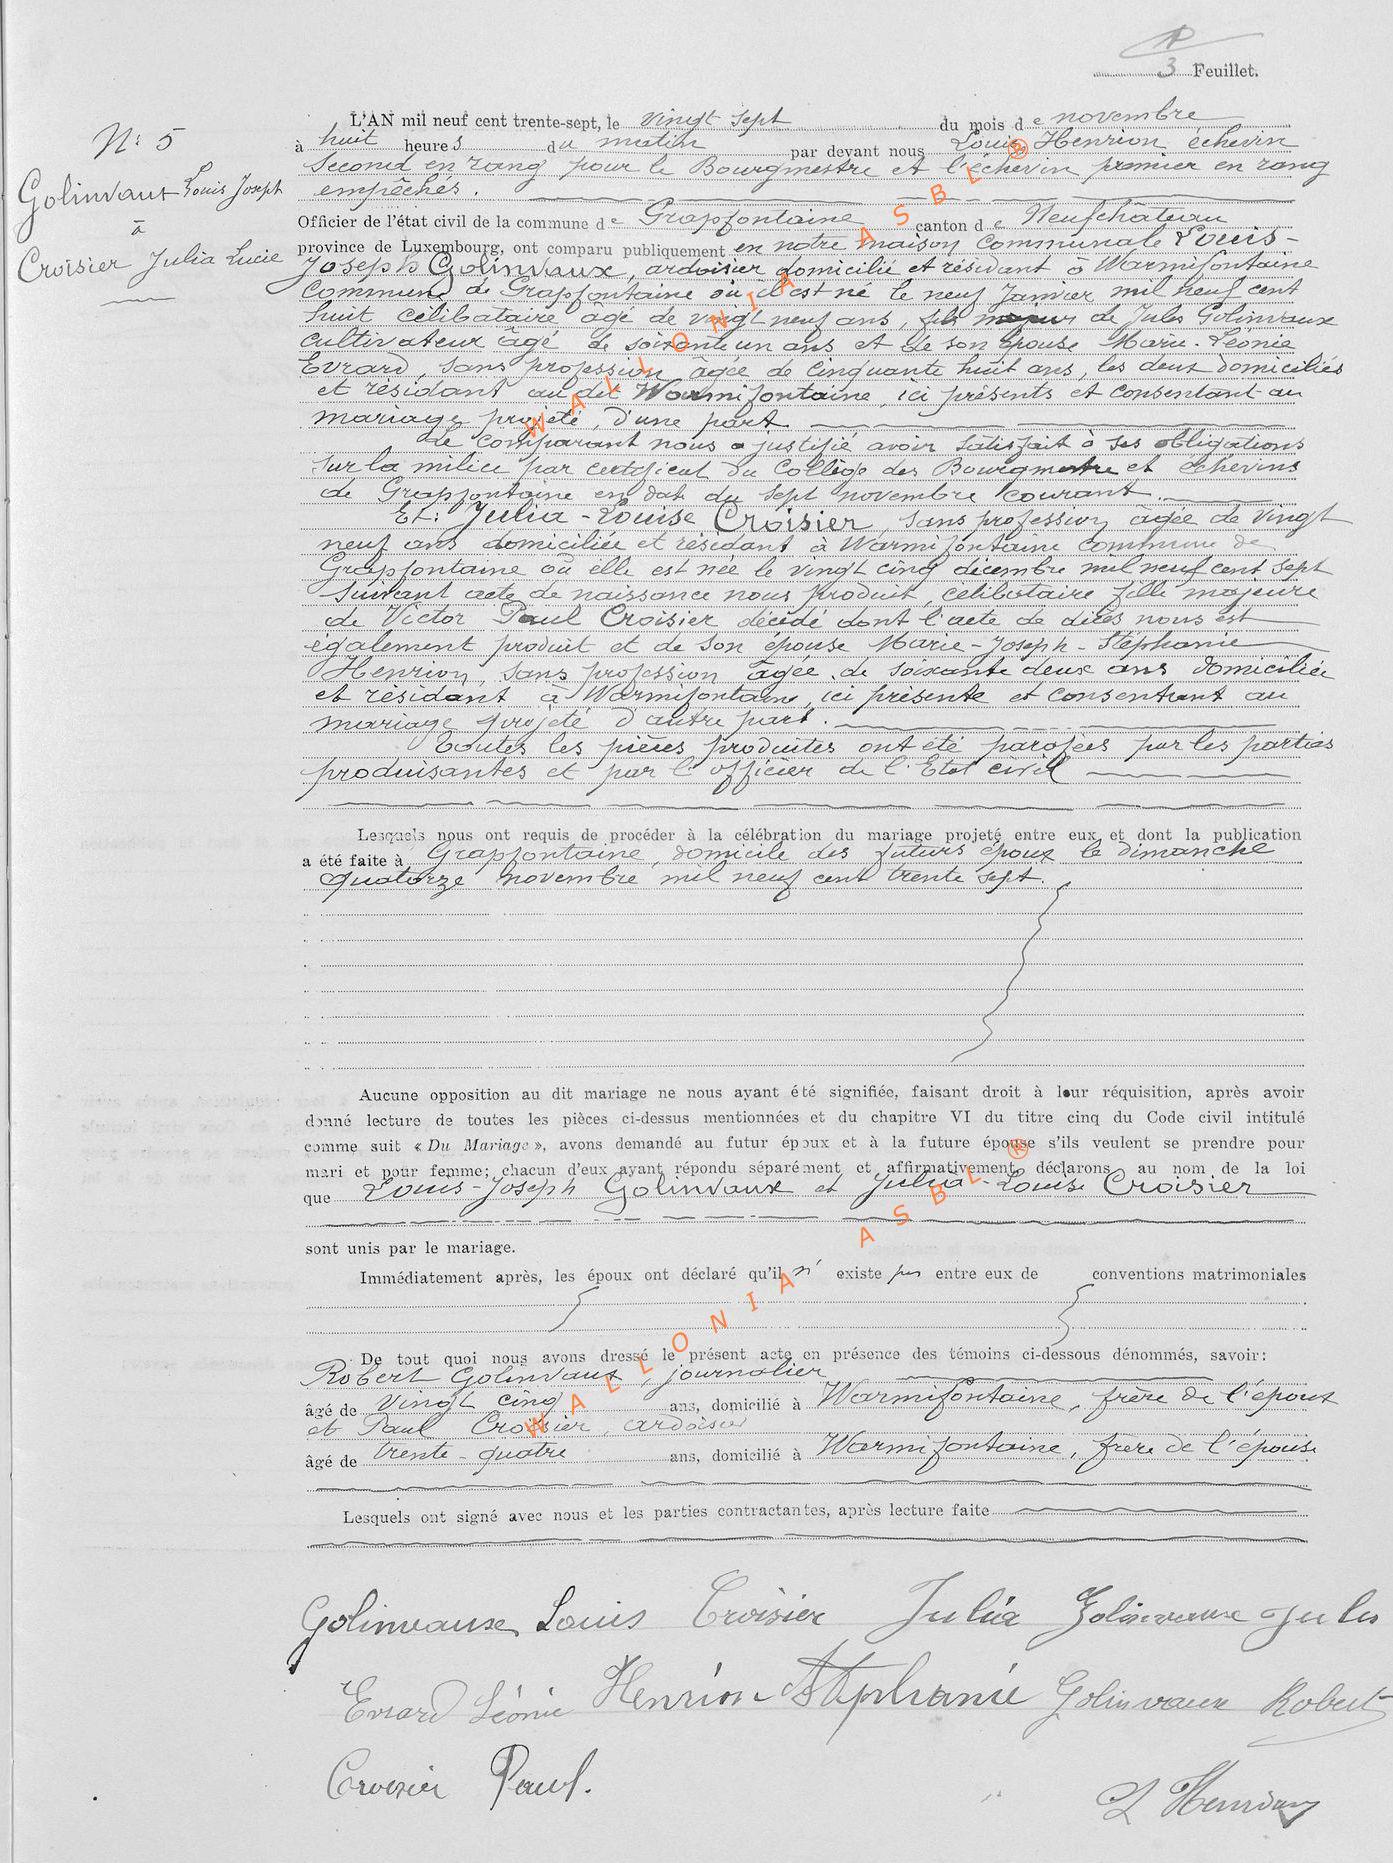 3 Feuillet.
N: 5
Golinvaux Louis Joseph
à
Croisier Julia Lucie
L'AN mil neuf cent trente-sept, le vingt sept du mois de novembre
à huit heures du matin par devant nous Louis Henrion échevin
second en rang pour le Bourgmestre et l'échevin premier en rang
empêchés.
Officier de l'état civil de la commune de Grapfontaine canton de Neufchâteau
province de Luxembourg, ont comparu publiquement en notre maison communale Louis-
Joseph Golinvaux, ardoisier domicilié et résidant à Warmifontaine
commune de Grapfontaine où il est né le neuf Janvier mil neuf cent
huit célibataire âgé de vingt neuf ans, fils majeur de Jules Golinvaux
cultivateur âgé de soixante un ans et de son épouse Marie-Léonie
Evrard, sans profession, âgée de cinquante huit ans, les deux domiciliés
et résidant au dit Warmifontaine, ici présents et consentant au
mariage projeté, d'une part
Le comparant nous a justifié avoir satisfait à ses obligations
sur la milice par certificat du Collège des Bourgmestre et échevins
de Grapfontaine en date du sept novembre courant.
Et: Julia-Louise Croisier, sans profession, âgée de vingt
neuf ans domiciliée et résidant à Warmifontaine commune de
Grapfontaine où elle est née le vingt cinq décembre mil neuf cent sept
suivant acte de naissance nous produit, célibataire fille majeure
de Victor Paul Croisier décédé dont l'acte de décès nous est
également produit et de son épouse Marie-Joseph-Stéphanie
Henrion, sans profession âgée de soixante deux ans domiciliée
et résidant à Warmifontaine, ici présente et consentant au
mariage projeté d'autre part.
Toutes les pièces produites ont été parafées par les parties
produisantes et par l'officier de l'Etat civil
Lesquels nous ont requis de procéder à la célébration du mariage projeté entre eux et dont la publication
a été faite à Grapfontaine, domicile des futurs époux le dimanche
quatorze novembre mil neuf cent trente sept.
Aucune opposition au dit mariage ne nous ayant été signifiée, faisant droit à leur réquisition, après avoir
donné lecture de toutes les pièces ci-dessus mentionnées et du chapitre VI du titre cinq du Code civil intitulé
comme suit « Du Mariage », avons demandé au futur époux et à la future épouse s'ils veulent se prendre pour
mari et pour femme; chacun d'eux ayant répondu séparément et affirmativement, déclarons au nom de la loi
que Louis-Joseph Golinvaux et Julia-Louise Croisier
sont unis par le mariage.
Immédiatement après, les époux ont déclaré qu'il n'existe pas entre eux de conventions matrimoniales
De tout quoi nous avons dressé le présent acte en présence des témoins ci-dessous dénommés, savoir:
Robert Golinvaux, journalier
âgé de vingt cinq ans, domicilié à Warmifontaine, frère de l'époux
et Paul Croisier, ardoisier
âgé de trente-quatre ans, domicilié à Warmifontaine, frère de l'épouse
Lesquels ont signé avec nous et les parties contractantes, après lecture faite
Golinvaux Louis Croisier Julia Golinvaux Jules
Evrard Léonie Henrion Stéphanie Golinvaux Robert
Croisier Paul.
L Henrion
WALLONIA ASBL ®
WALLONIA ASBL ®